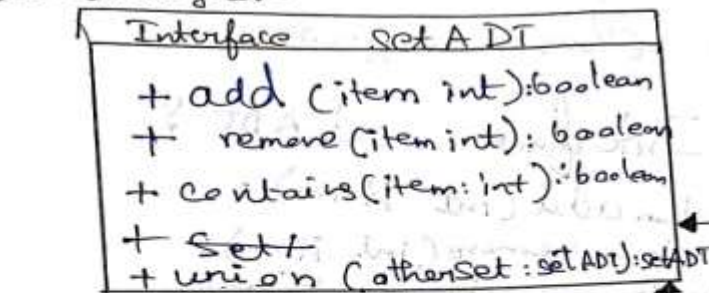 Interface set ADT
+ add (item int):boolean
+ remove (item int): boolean
+ contains (item: int): boolean
+ union (otherSet : set ADT): setADT